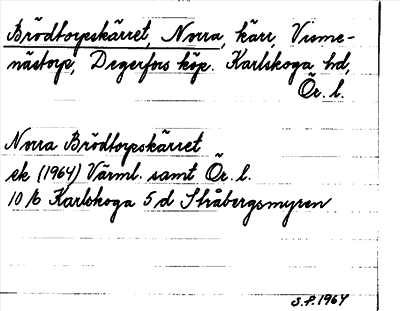 Brödtorpskärret, Norra, kärr, Visme-
nästorp, Degerfors köp. Karlskoga hd,
Ör. l.
Norra Brödtorpskärret
ek (1964) Värml. samt Ör. l.
10 /6 Karlskoga 5 d Stråbergsmyren
S.P. 1964